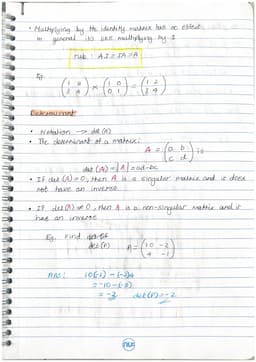 • Multiplying by the identity matrix has no effect.
in general its like multiplying by 1
rule : AI = IA = A
Eg.
(1 2
3 4) × (1 0
0 1) = (1 2
3 4)
Determinant
• Notation → det (A)
• The determinant of a matrix:
A = (a b
c d) is
det (A) = |A| = ad-bc
• If det (A) = 0, then A is a singular matrix and it does
not have an inverse
• If det (A) ≠ 0, then A is a non-singular matrix and it
has an inverse
Eg. Find
det(A) A = (10 -2
4 -1)
Ans: 10(-1) - (-2)4
= -10 - (-8)
= -2 det(A) = -2